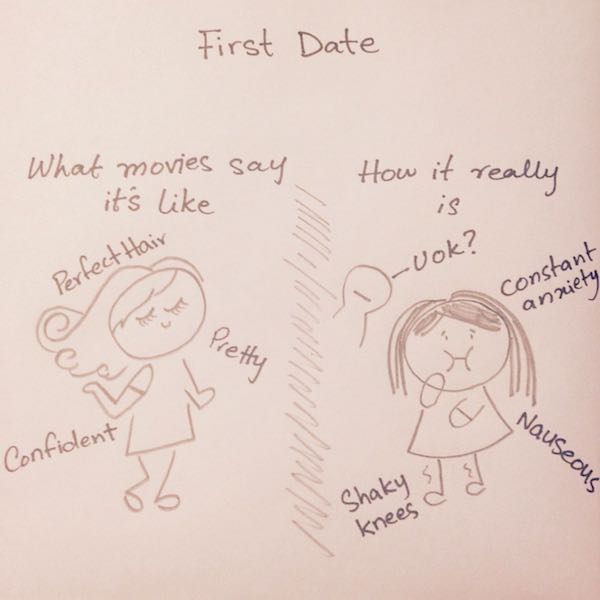 First Date
What movies say
it's like
Perfect Hair
Pretty
Confident
How it really
is
UOK?
Constant
anxiety
Nauseous
Shaky
knees